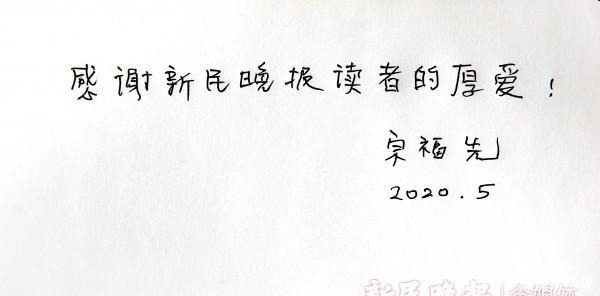 感谢新民晚报读者的厚爱！
宗福先
2020.5
新民晚报|全媒体